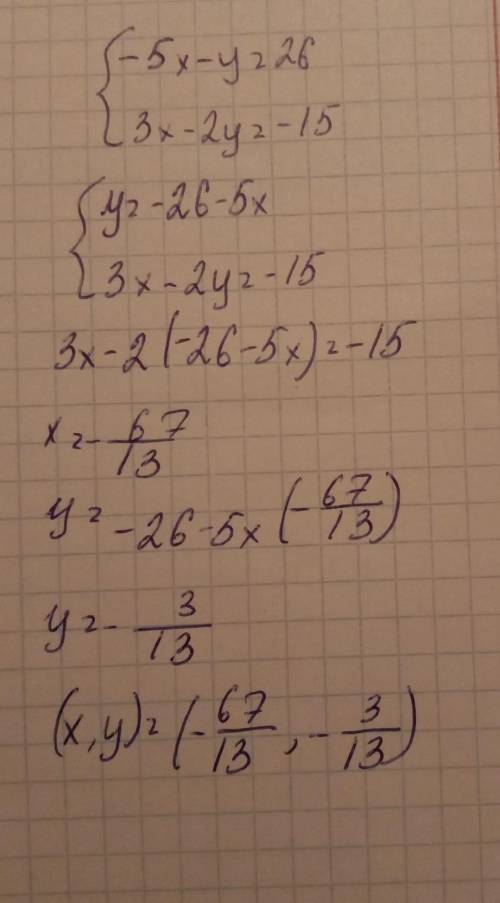 -5x-y=26
3x-2y=-15
y=-26-5x
3x-2y=-15
3x-2(-26-5x)=-15
x=-67/13
y=-26-5x(-67/13)
y=-3/13
(x,y)=(-67/13,-3/13)